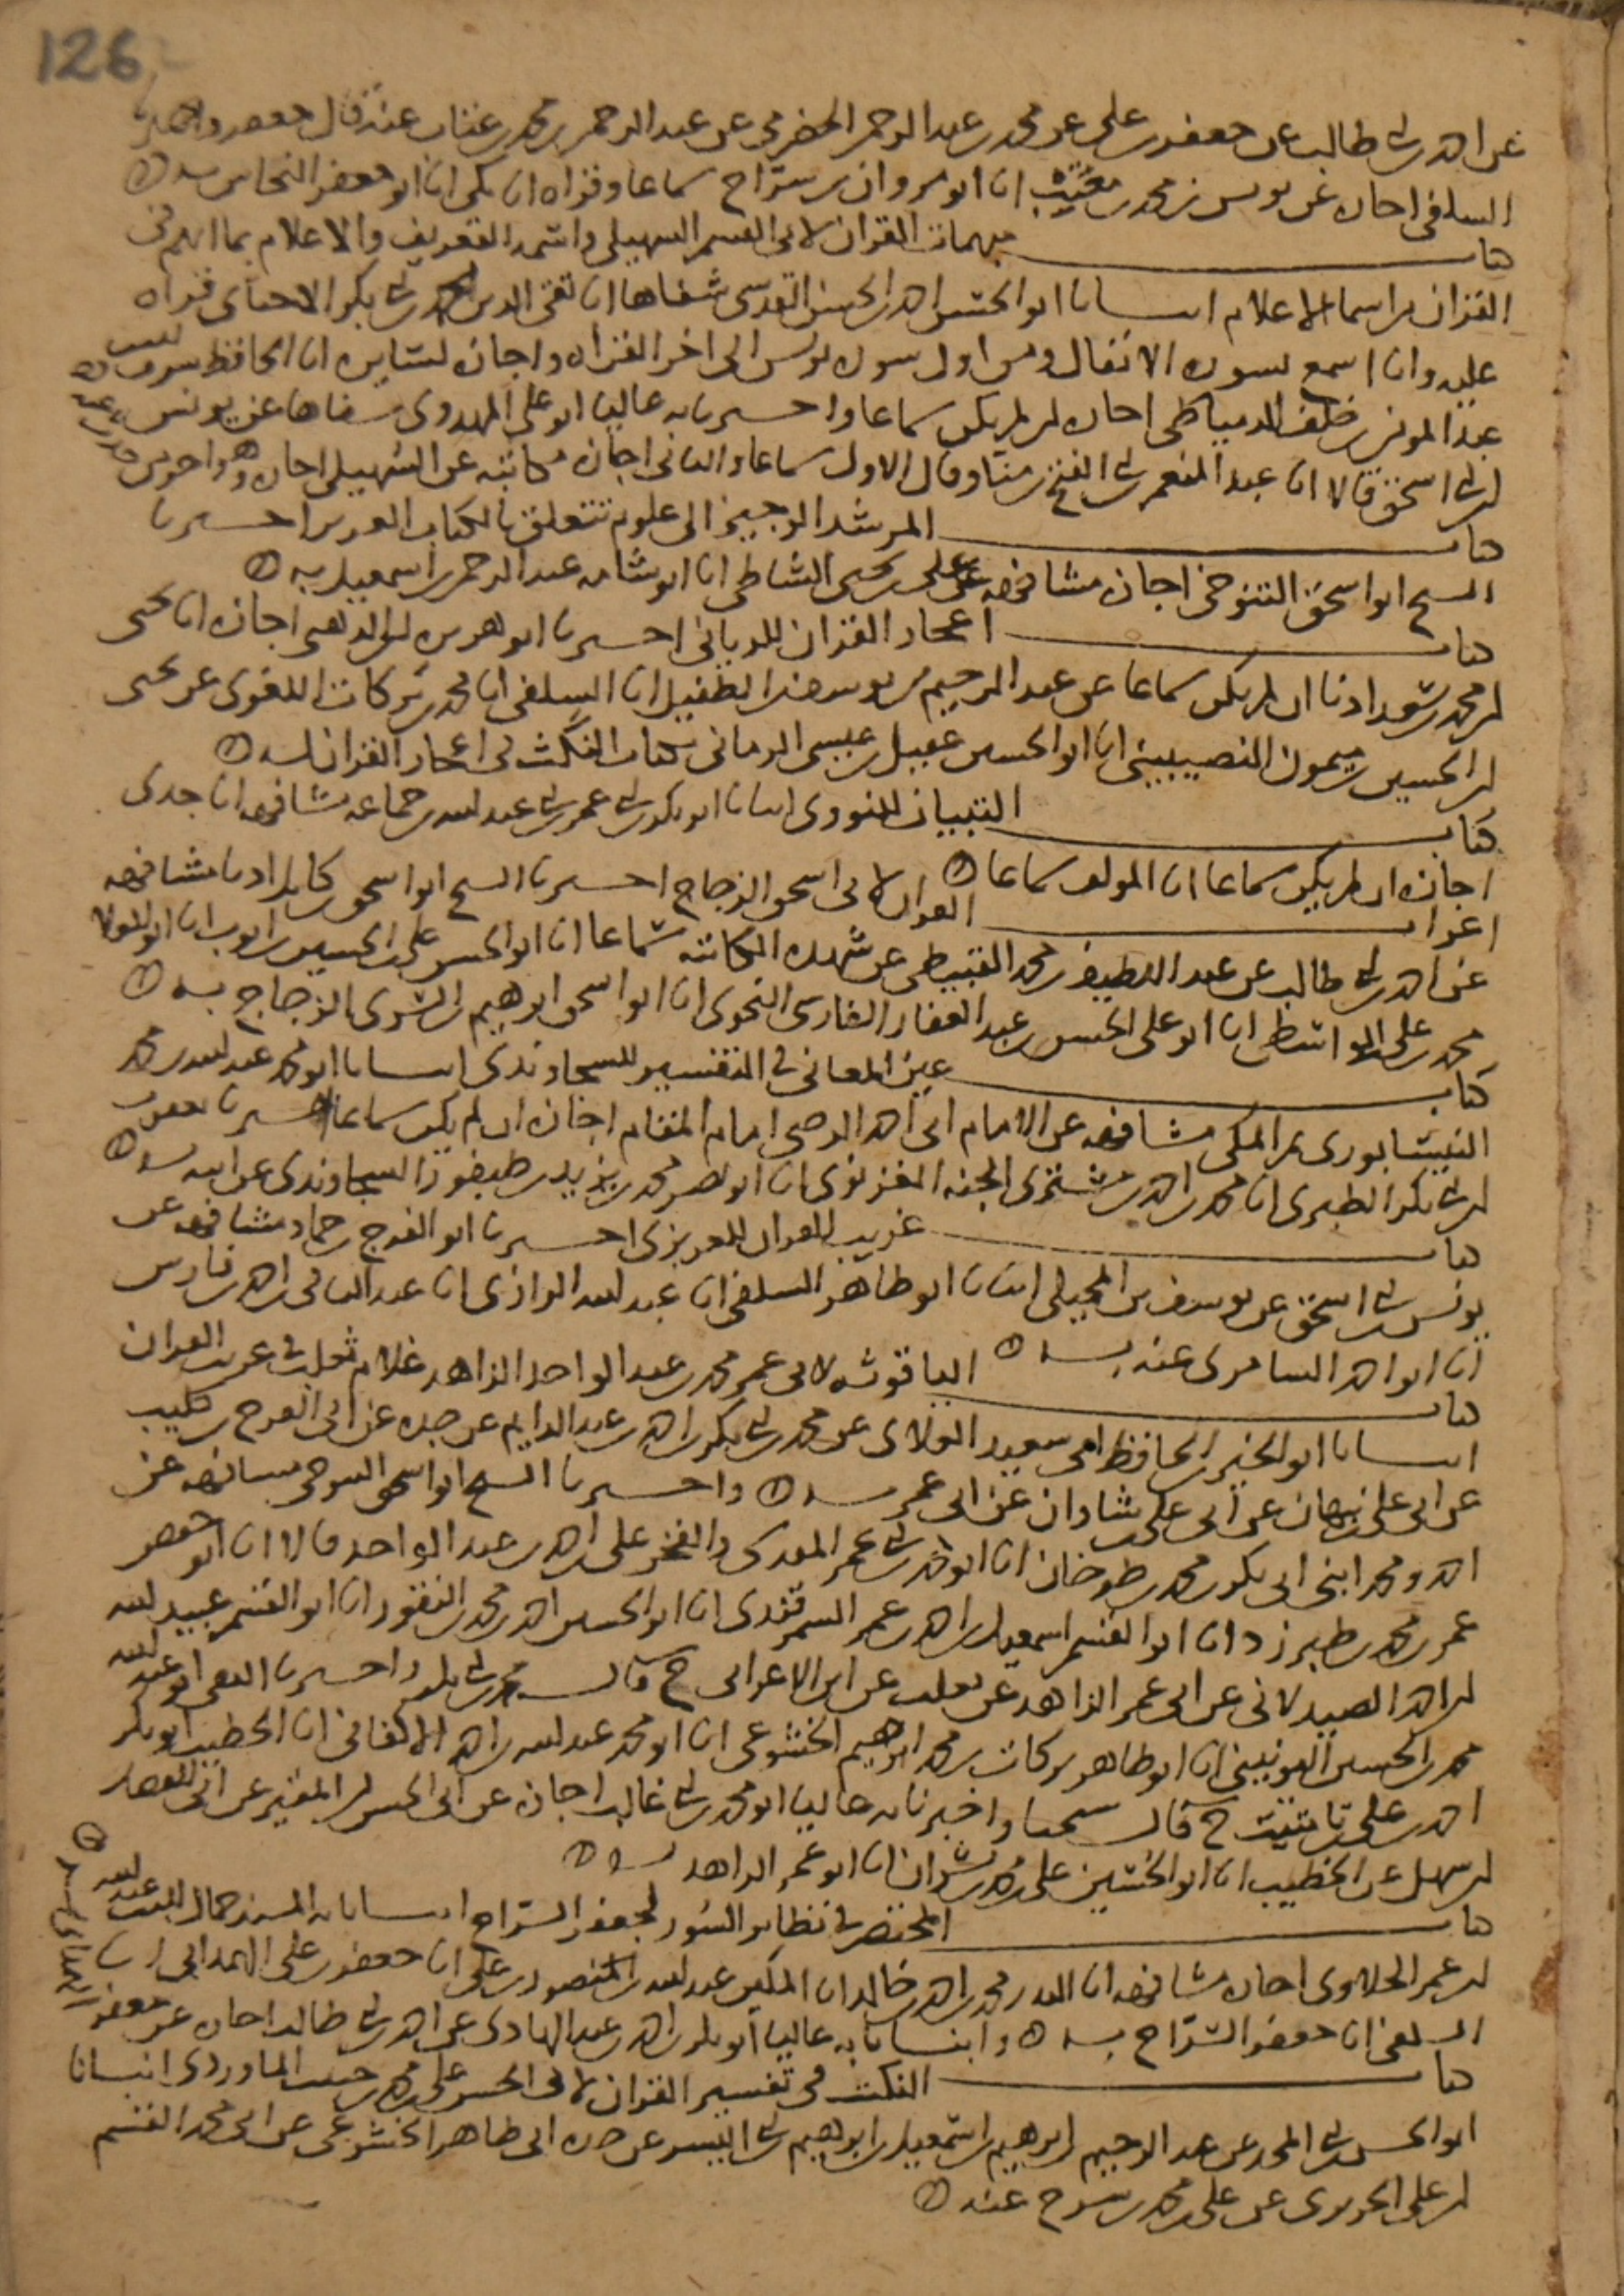 126
عن احمد بن ابي طالب عن جعفر بن علي عن محمد بن عبد الرحمن الحضرمي عن عبد الرحمن بن محمد بن عتاب عنه قال جعفر
السلفي اجازه عن يونس بن محمد بن مغيث انا ابو مروان بن سراج سماعا وقراه انا مكي انا ابو جعفر النحاس به
كتاب مبهمات القران لابي القسم السهيلي واسمه التعريف والاعلام بما ابهم في
القران من اسما الاعلام انبانا ابو الحسن بن احمد بن الحسن القدسي شفاها انا تقي الدين محمد بن ابي بكر الاخناي قراه
عليه وانا اسمع لسوره الانفال ومن اول سوره يونس الى اخر القران واجازه لسايره انا الحافظ شرف الدين
عبد المومن بن خلف الدمياطي اجازه ان لم يكن سماعا واخبرنا به عاليا ابو علي المهدوي شفاها عن يونس
بن ابي اسحق قالا انا عبد المنعم بن ابي الفتح قال الاول سماعا والثاني اجازه مكاتبه عن السهيلي اجازه
كتاب المرشد الوجيز الى علوم تتعلق بالكتاب العزيز اخبرنا
الشيخ ابو اسحق التنوخي اجازه مشافهه عن علي بن يحيى الشاطبي انا ابو شامه عبد الرحمن بن اسمعيل به
كتاب اعجاز القران للرماني اخبرنا ابو هريره بن الذهبي اجازه انا يحيى
بن محمد بن سعد اذنا ان لم يكن سماعا عن عبد الرحيم بن يوسف بن الطفيل انا السلفي انا محمد بن بركات اللغوي عن يحيى
بن الحسين بن ميمون النصيبيني انا ابو الحسن عقيل بن عيسى الرماني بكتاب النكت في اعجاز القران له
كتاب التبيان للنووي انبانا ابو بكر بن ابي عمر بن ابي عبد الله بن جماعه مشافهه انا جدي
اجازه ان لم يكن سماعا انا المولف سماعا
اعراب القران لابي اسحق الزجاج اخبرنا الشيخ ابو اسحق بن كامل اذنا مشافهه
عن احمد بن ابي طالب عن عبد اللطيف بن محمد القبيطي عن شهده الكاتبه سماعا انا ابو الحسن علي بن الحسين بن ايوب انا ابو العلا
محمد بن علي الواسطي انا ابو علي الحسن بن عبد الغفار الفارسي النحوي انا ابو اسحق ابرهيم بن السري الزجاج به
كتاب عين المعاني في التفسير للسجاوندي انبانا ابو محمد عبد الله بن محمد
النيسابوري ثم المكي مشافهه عن الامام ابي احمد الرضي امام المقام اجازه ان لم يكن سماعا اخبرنا يعقوب
بن ابي بكر الطبري انا محمد بن احمد بن مشتري الجنه الغزنوي انا ابو نصر محمد بن يزيد بن طيفور السجاوندي عن ابيه به
كتاب غريب القران للعزيزي اخبرنا ابو الفرج بن حماد مشافهه عن
يونس بن ابي اسحق عن يوسف بن المخيلي انبانا ابو طاهر السلفي انا عبد الله الرازي انا عبد الباقي بن احمد بن فارس
انا ابو احمد السامري عنه به
كتاب الياقوته لابي عمر محمد بن عبد الواحد الزاهد غلام ثعلب في غريب القران
انبانا ابو الخير بن الحافظ ابي سعيد العلاي عن محمد بن ابي بكر بن احمد بن عبد الدايم عن جده عن ابي الفرج بن كليب
عن ابي علي بن نبهان عن ابي علي بن شاذان عن ابي عمر به واخبرنا الشيخ ابو اسحق التنوخي مشافهه عن
احمد ومحمد ابني ابي بكر بن محمد بن طرخان انا ابو بن ابي عمر المقدسي والفخر علي بن احمد بن عبد الواحد قالا انا ابو حفص
عمر بن محمد بن طبرزد انا ابو القسم اسمعيل بن احمد بن عمر السمرقندي انا ابو الحسين احمد بن محمد بن النقور انا ابو القسم عبيد الله
بن احمد الصيدلاني عن ابي عمر الزاهد عن ثعلب عن ابن الاعرابي ح قال محمد بن ابي بكر واخبرنا ابو عبد الله
محمد بن الحسين القرنيني انا ابو طاهر بركات بن محمد ابرهيم الخشوعي انا ابو محمد عبد الله بن احمد الاكفاني انا الخطيب ابو بكر
احمد بن علي بن ثابت ح قال شيخنا واخبرنا به عاليا ابو محمد بن ابي غالب اجازه عن ابي الحسن بن المقير عن ابي الفضل
بن سهل عن الخطيب انا ابو الحسين علي بن محمد بن بشران انا ابو عمر الزاهد به
كتاب المختصر في نظاير السور لجعفر السراج انبانا به المسند جمال الدين عبد الله
بن عمر الحلاوي اجازه مشافهه انا البدر محمد بن احمد بن خالد انا المكين عبد الله بن المنصور بن علي انا جعفر بن علي الهمداني انا
السلفي انا جعفر السراج به وانبانا به عاليا ابو بكر بن احمد بن عبد الهادي عن احمد بن ابي طالب اجازه عن جعفر
كتاب النكت في تفسير القران لابي الحسن علي بن محمد بن حبيب الماوردي انبانا
ابو الحسن بن ابي المجد عن عبد الرحيم بن ابرهيم بن اسمعيل بن ابرهيم بن ابي اليسر عن جده ابي طاهر الخشوعي عن ابي محمد القسم
بن علي الحريري عن علي بن محمد بن سرح عنه